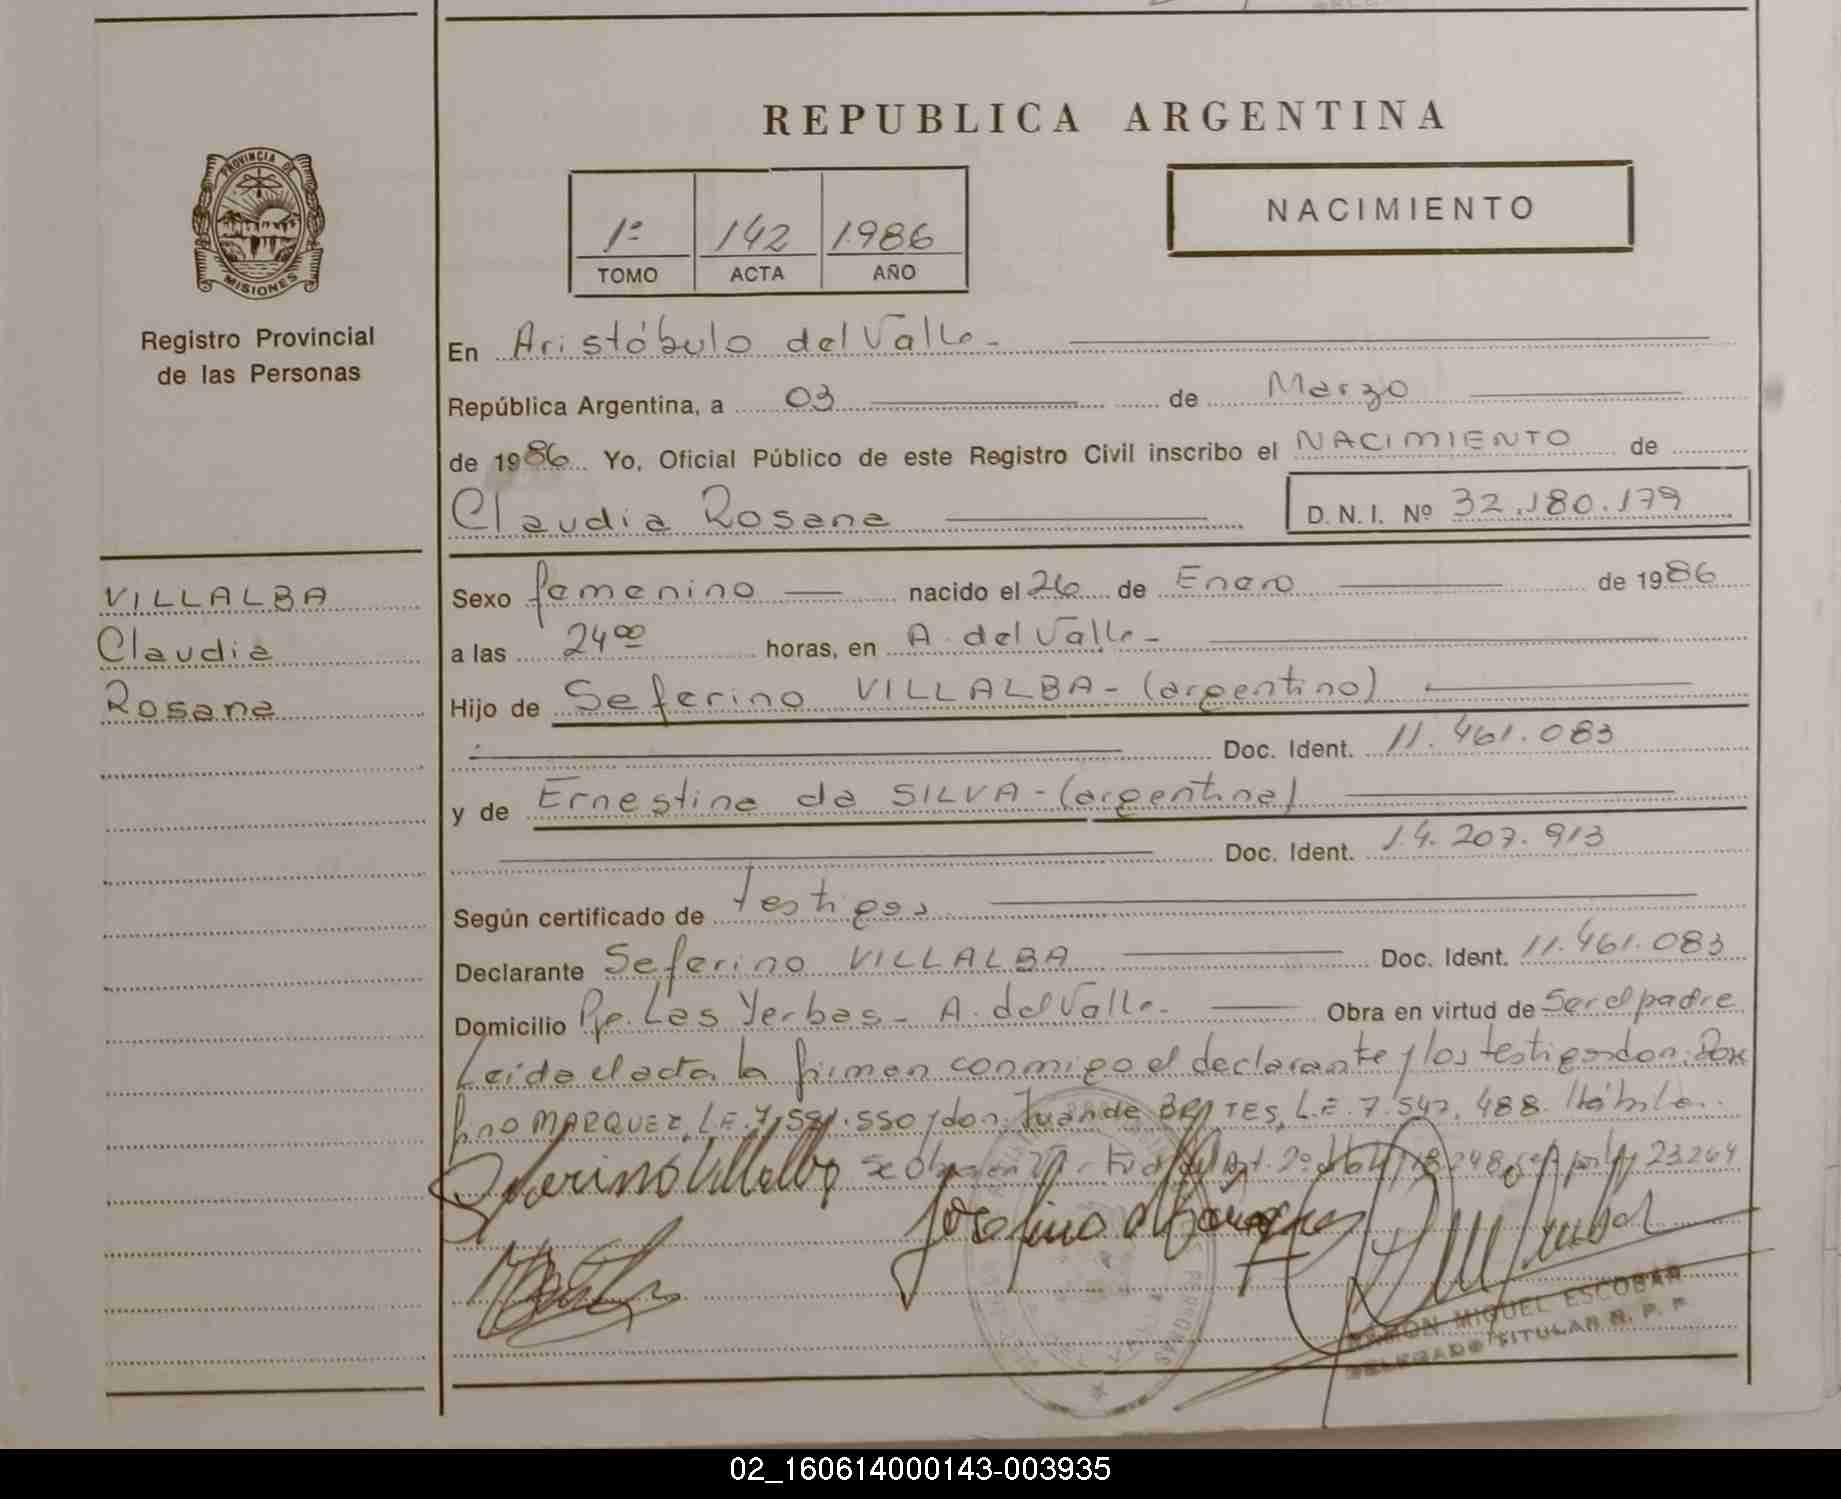 REPUBLICA ARGENTINA
PROVINCIA DE
MISIONES
Registro Provincial
de las Personas
1º 142 1986
TOMO ACTA AÑO
NACIMIENTO
En Aristóbulo del Valle.-
República Argentina, a 03 de Marzo
de 1986 Yo, Oficial Público de este Registro Civil inscribo el NACIMIENTO de
Claudia Rosana D. N. I. Nº 32.180.179
VILLALBA
Claudia
Rosana
Sexo femenino nacido el 26 de Enero de 1986
a las 24 00 horas, en A. del Valle.-
Hijo de Seferino VILLALBA - (argentino)
Doc. Ident. 11.461.083
y de Ernestina da SILVA - (argentina)
Doc. Ident. 14.207.913
Según certificado de testigos
Declarante Seferino VILLALBA Doc. Ident. 11.461.083
Domicilio Pje. Las Yerbas - A. del Valle.- Obra en virtud de Ser el padre
Leída el acta la firman conmigo el declarante y los testigos don:
fino MARQUEZ, L.E. 7.591.550 y don: Juan de L.E. 7.542.488. Hábiles.
Seferino Villalba 23264
Josefino Márquez
RAMON MIGUEL ESCOBAR
DELEGADO TITULAR R. P. P.
02_160614000143-003935